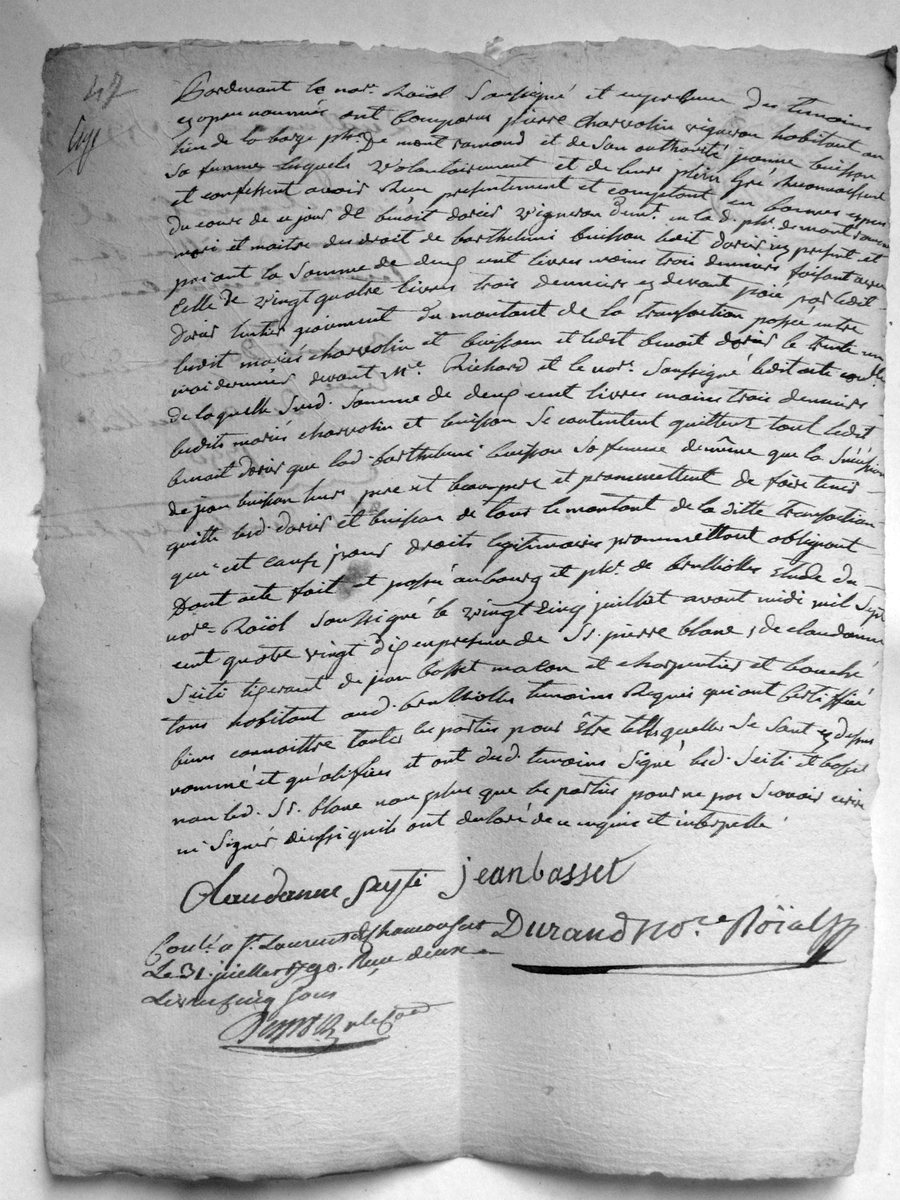 47
Pardevant le nore. Roïal Soussigné et en presence des temoins
cy apres nommés ont Comparus pierre charvolin vigneron habitant au
lieu de la barge phse. De mont romand et de son authorité jeanne buisson
Sa femme lesquels volontairement et de leurs plein Gré reconnaissent
et confessent avoir Reçu presentement et comptant en bonnes especes
du cours de ce jour de benoit dorier vigneron demt. en la d. phse. de mont romand
mari et maitre des droit de barthelmie buisson ledit dorier icy present et
priant la Somme de deux cent livres moins trois denniers faisant avec
Celle de vingt quatre livres trois denniers cy devant païé par ledit
dorier l'entier païement du montant de la transaction passée entre
lesdit mariés charvolin et buisson et ledit benoit dorier le trente un
mai dernier devant Me. Richard et le nore. Soussigné ledit acte conlé.
de laquelle Susd. Somme de deux cent livres moins trois denniers
lesdits mariés charvolin et buisson Se contentent quittent tout ledit
benoit dorier que lad. barthelmie buisson sa femme de même que la succession
de jean buisson leurs pere et beaupere et promettent de faire tenir
quitte lesd. dorier et buisson de tout le montant de la ditte transaction
qui est causé pour droits legitimaires promettant obligeant
Dont acte fait et passé au bourg et phse. de brullioles Etude du
nore. Roïal Soussigné le vingt cinq juillet avant midi mil Sept
cent quatre vingt dix en presence de Sr. pierre blanc, de claudanne
Seiti tisserant de jean basset maçon et charpentier et bouché
tous habitant aud. brullioles temoins Requis qui ont Certiffié
biens connoittre toutes les parties pour être telles quelles Se Sont cy dessus
nommé et qu'alifiés et ont desd. temoins signé lesd. Seiti et basset
non led. Sr. blanc non plus que les parties pour ne pas Scavoir ecrire
ni Signer deussi quils ont declaré de ce enquis et interpellé.
Claudanne Seyti jean basset
Durand nore Roïal
Conlé. a St. Laurent de chamousset
Le 31. juillet 1790. Reçu deux
Livres Cinq Sous